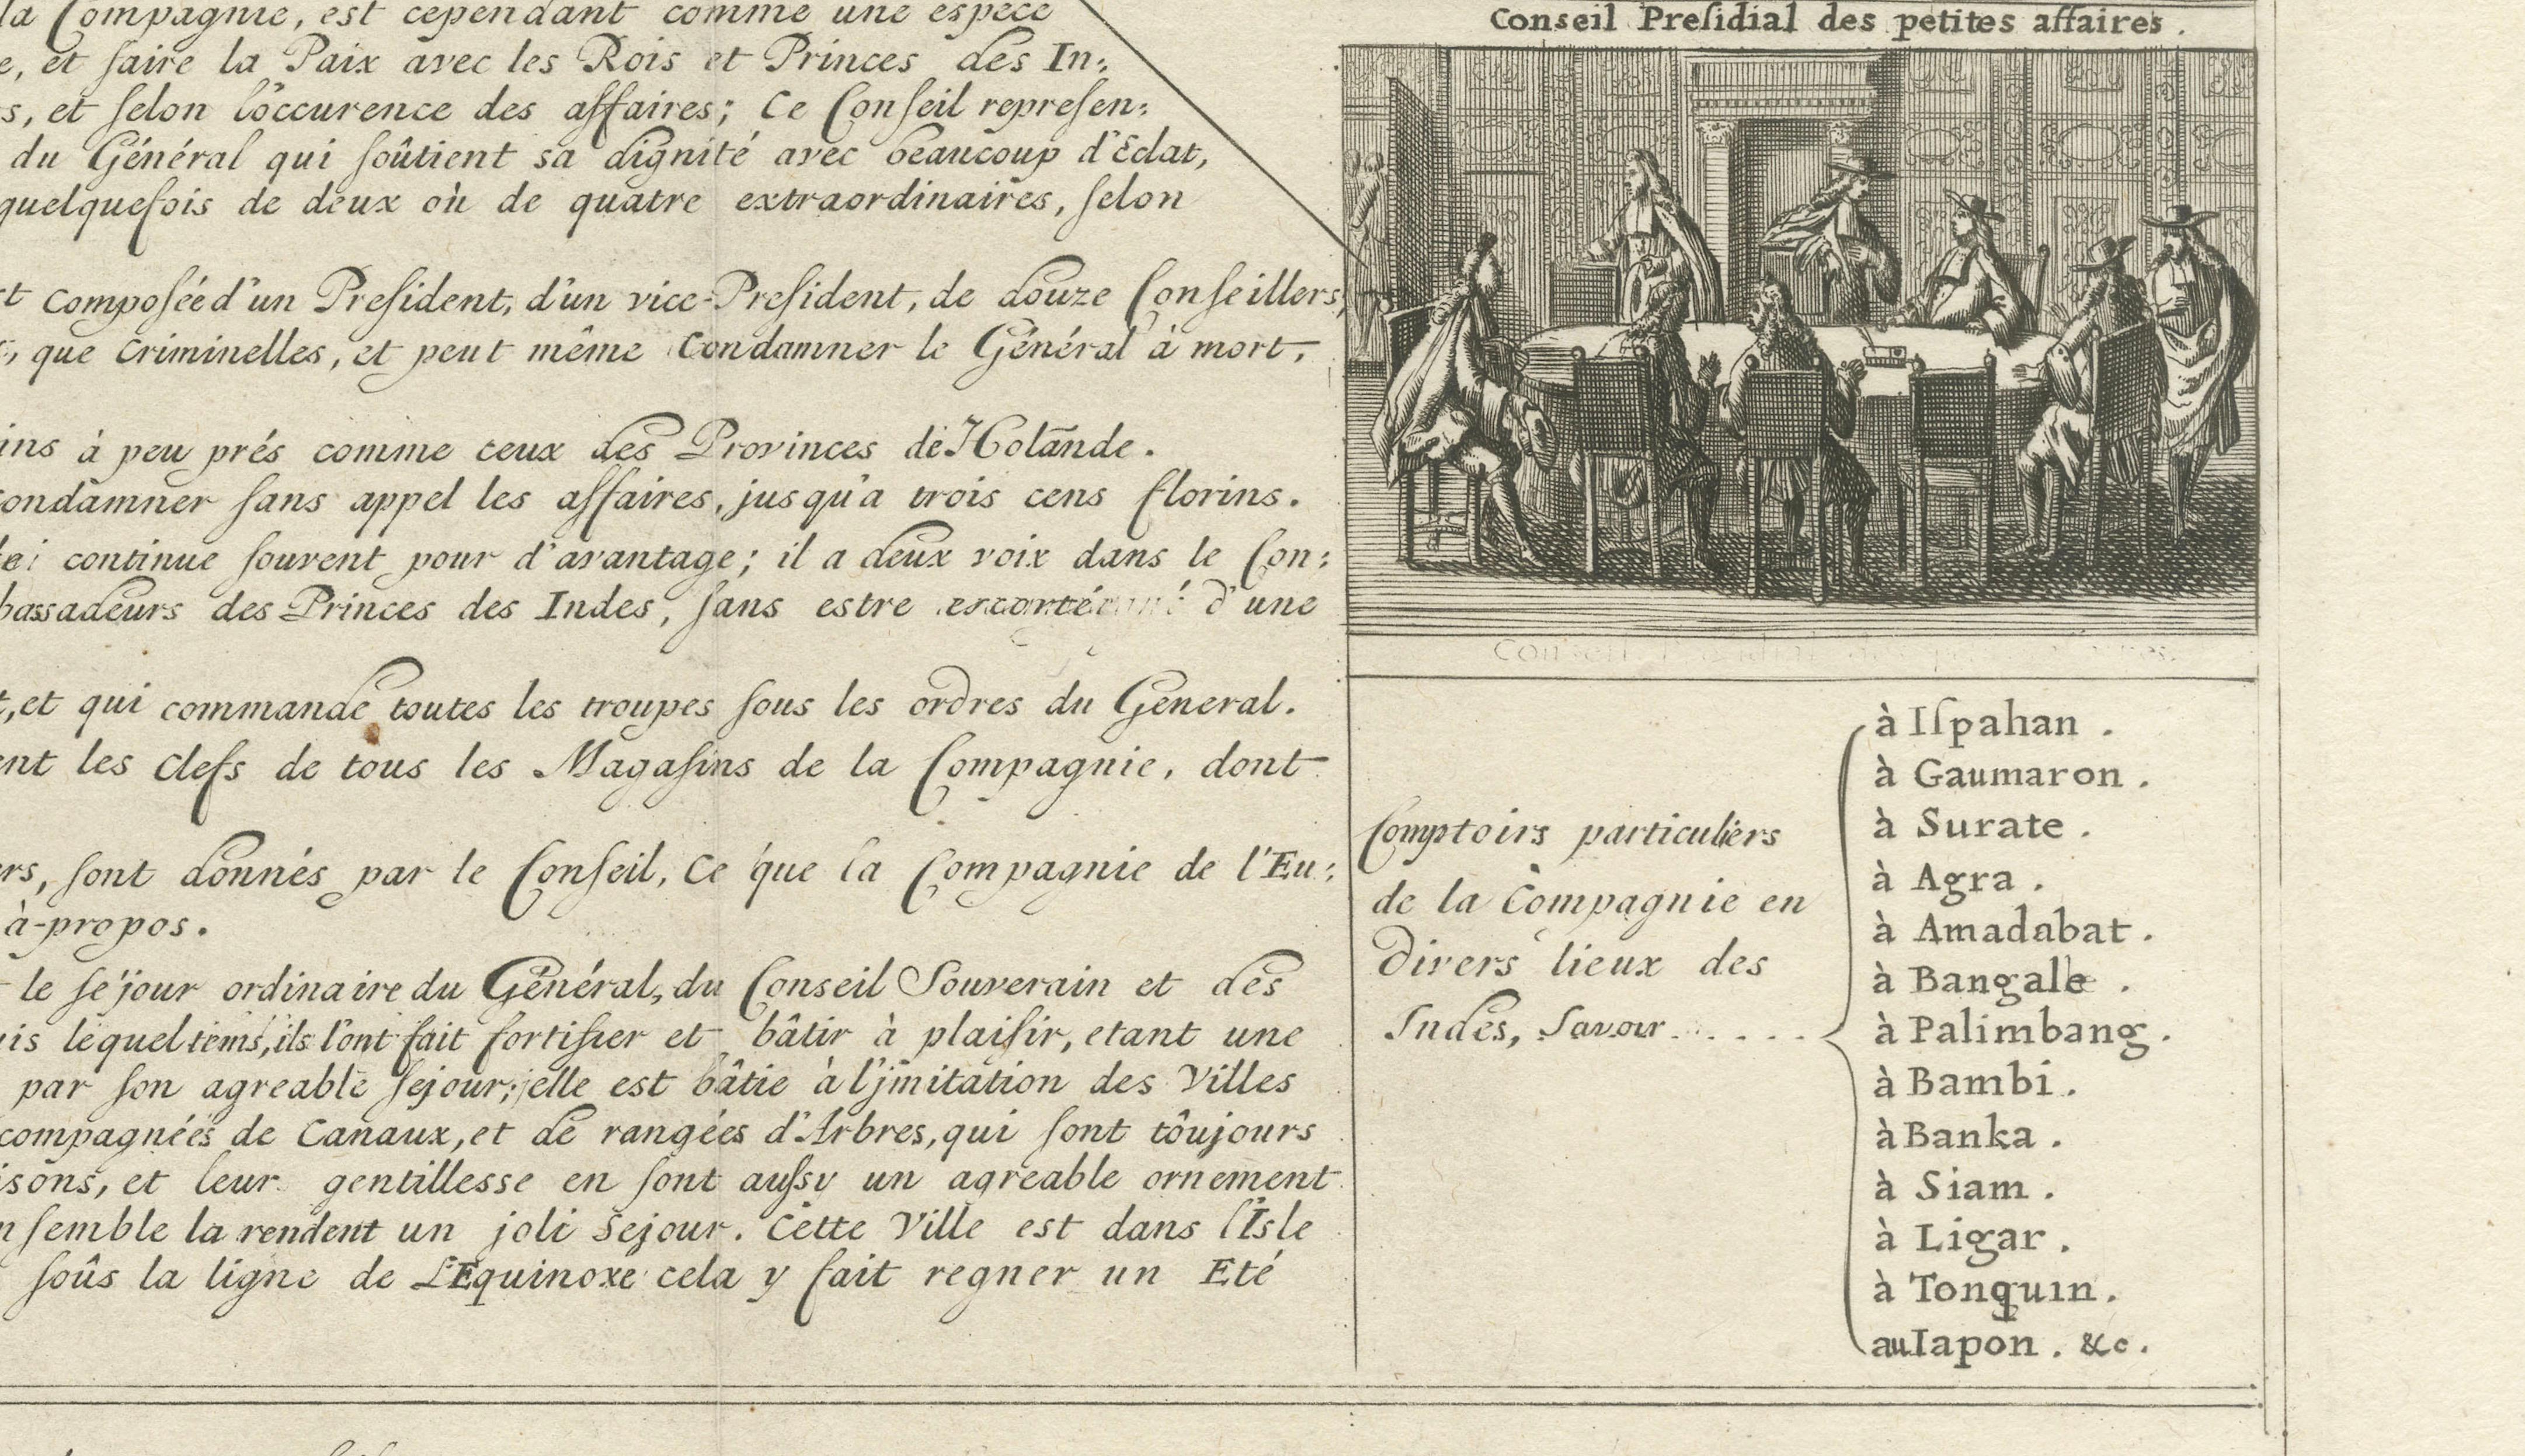 la Compagnie, est cependant comme une espece
e, et faire la Paix avec les Rois et Princes des In:
s, et selon l'occurence des affaires; Ce Conseil represen:
du Général qui soûtient sa dignité avec beaucoup d'Eclat,
quelquefois de deux où de quatre extraordinaires, selon
composée d'un President, d'un vice-President, de douze Conseillers,
que Criminelles, et peut même Condamner le Général à mort,
ins à peu prés comme ceux des Provinces de Holande.
condamner sans appel les affaires, jusqu'a trois cens florins.
continue souvent pour d'avantage; il a deux voix dans le Con:
bassadeurs des Princes des Indes, sans estre escorté d'une
t, et qui commande toutes les troupes sous les ordres du General.
ent les Clefs de tous les Magasins de la Compagnie, dont
ers, sont donnés par le Conseil, Ce que la Compagnie de l'Eu:
à-propos.
le séjour ordinaire du Général, du Conseil Souverain et des
is lequel tems, ils l'ont fait fortifier et bâtir à plaisir, etant une
par son agreable sejour; elle est bâtie à l'jmitation des Villes
compagnées de Canaux, et de rangées d'Arbres, qui sont tôujours
isons, et leur gentillesse en sont aussy un agreable ornement
nsemble la rendent un joli Sejour. Cette Ville est dans l'Isle
soûs la ligne de L'Equinoxe cela y fait regner un Eté
Conseil Presidial des petites affaires.
Comptoirs particuliers
de la Compagnie en
Divers lieux des
Indes, Savoir.....
à Ispahan.
à Gaumaron.
à Surate.
à Agra.
à Amadabat.
à Bangale.
à Palimbang.
à Bambi.
à Banka.
à Siam.
à Ligar.
à Tonquin.
au Iapon. &c.